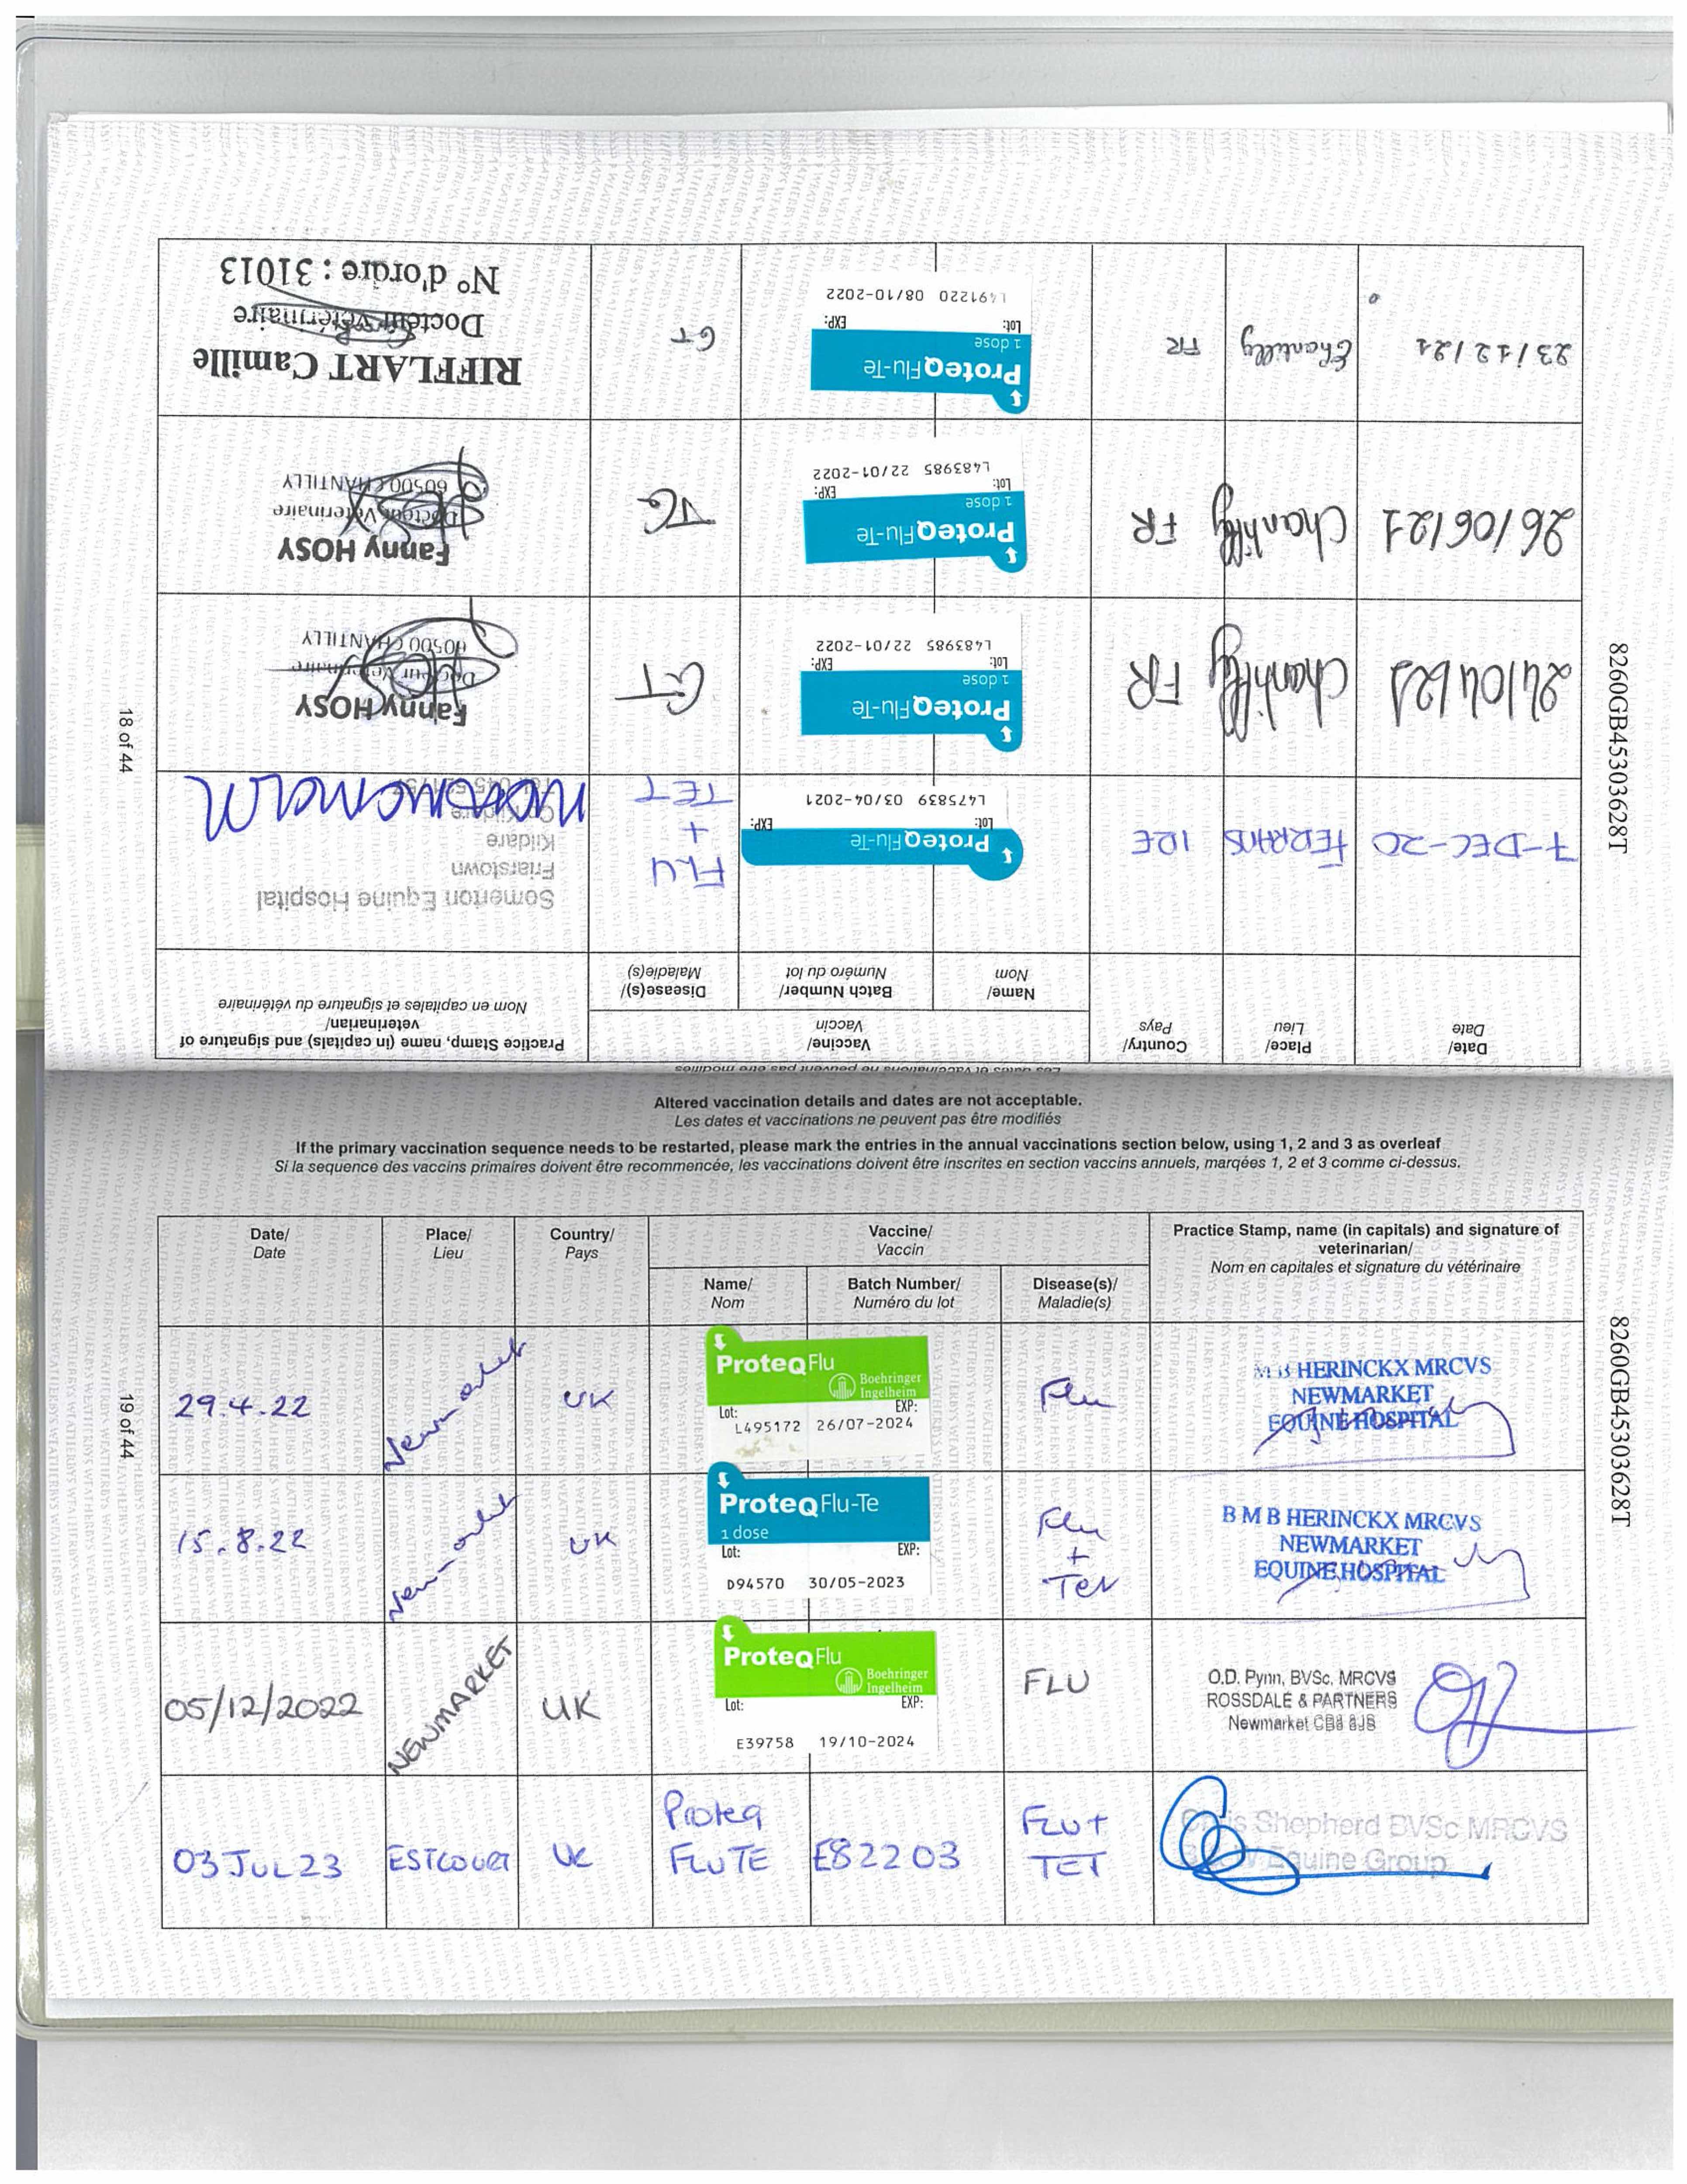 8260GB45303628T
18 of 44
Les dates et vaccinations ne peuvent pas être modifiés
Date/
Date
Place/
Lieu
Country/
Pays
Vaccine/
Vaccin
Name/
Nom
Batch Number/
Numéro du lot
Disease(s)/
Maladie(s)
Practice Stamp, name (in capitals) and signature of
veterinarian/
Nom en capitales et signature du vétérinaire
7-DEC-20
IRE
ProteqFlu-Te
Lot: EXP:
L475839 03/04-2021
FLU
+
TET
Somerton Equine Hospital
Friarstown
Kildare
Co Kildare
24/04/21
Chantilly
FR
ProteqFlu-Te
1 dose
Lot: EXP:
L483985 22/01-2022
GT
Fanny HOSY
Docteur Vétérinaire
60500 CHANTILLY
26/06/21
Chantilly
FR
ProteqFlu-Te
1 dose
Lot: EXP:
L483985 22/01-2022
TG
Fanny HOSY
Docteur Vétérinaire
60500 CHANTILLY
23/12/21
Chantilly
FR
ProteqFlu-Te
1 dose
Lot: EXP:
L491220 08/10-2022
GT
RIFFLART Camille
Docteur Vétérinaire
N° d'ordre : 31013
Altered vaccination details and dates are not acceptable.
Les dates et vaccinations ne peuvent pas être modifiés
If the primary vaccination sequence needs to be restarted, please mark the entries in the annual vaccinations section below, using 1, 2 and 3 as overleaf
Si la sequence des vaccins primaires doivent être recommencée, les vaccinations doivent être inscrites en section vaccins annuels, marqées 1, 2 et 3 comme ci-dessus.
8260GB45303628T
19 of 44
Date/
Date
Place/
Lieu
Country/
Pays
Vaccine/
Vaccin
Name/
Nom
Batch Number/
Numéro du lot
Disease(s)/
Maladie(s)
Practice Stamp, name (in capitals) and signature of
veterinarian/
Nom en capitales et signature du vétérinaire
29.4.22
Newmarket
UK
ProteqFlu
Boehringer
Ingelheim
Lot: EXP:
L495172 26/07-2024
Flu
M B HERINCKX MRCVS
NEWMARKET
EQUINE HOSPITAL
15.8.22
Newmarket
UK
ProteqFlu-Te
1 dose
Lot: EXP:
D94570 30/05-2023
Flu
+
Tet
B M B HERINCKX MRCVS
NEWMARKET
EQUINE HOSPITAL
05/12/2022
NEWMARKET
UK
ProteqFlu
Boehringer
Ingelheim
Lot: EXP:
E39758 19/10-2024
FLU
O.D. Pynn, BVSc, MRCVS
ROSSDALE & PARTNERS
Newmarket CB8 8JS
03 JUL 23
ESTCOURT
UK
Proteq
FLUTE
E82203
FLU+
TET
Chris Shepherd BVSc MRCVS
Equine Group